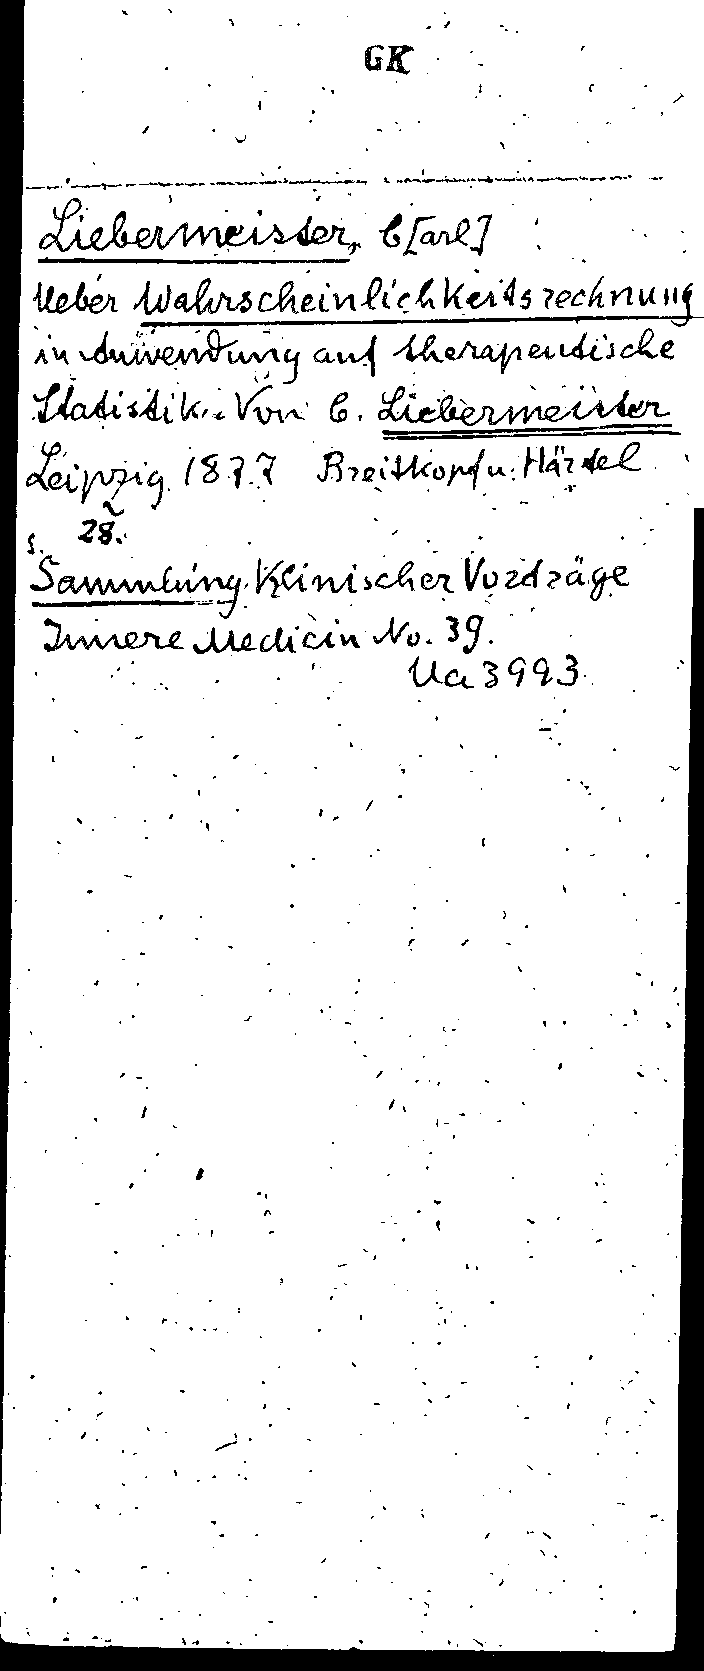 GK
Liebermeister, C[arl]
Ueber Wahrscheinlichkeitsrechnung
in Anwendung auf therapeutische
Statistik. Von C. Liebermeister
Leipzig 1877 Breitkopf u. Härtel
28.
s.
Sammlung Klinischer Vorträge
Innere Medicin No. 39.
Ua 3993